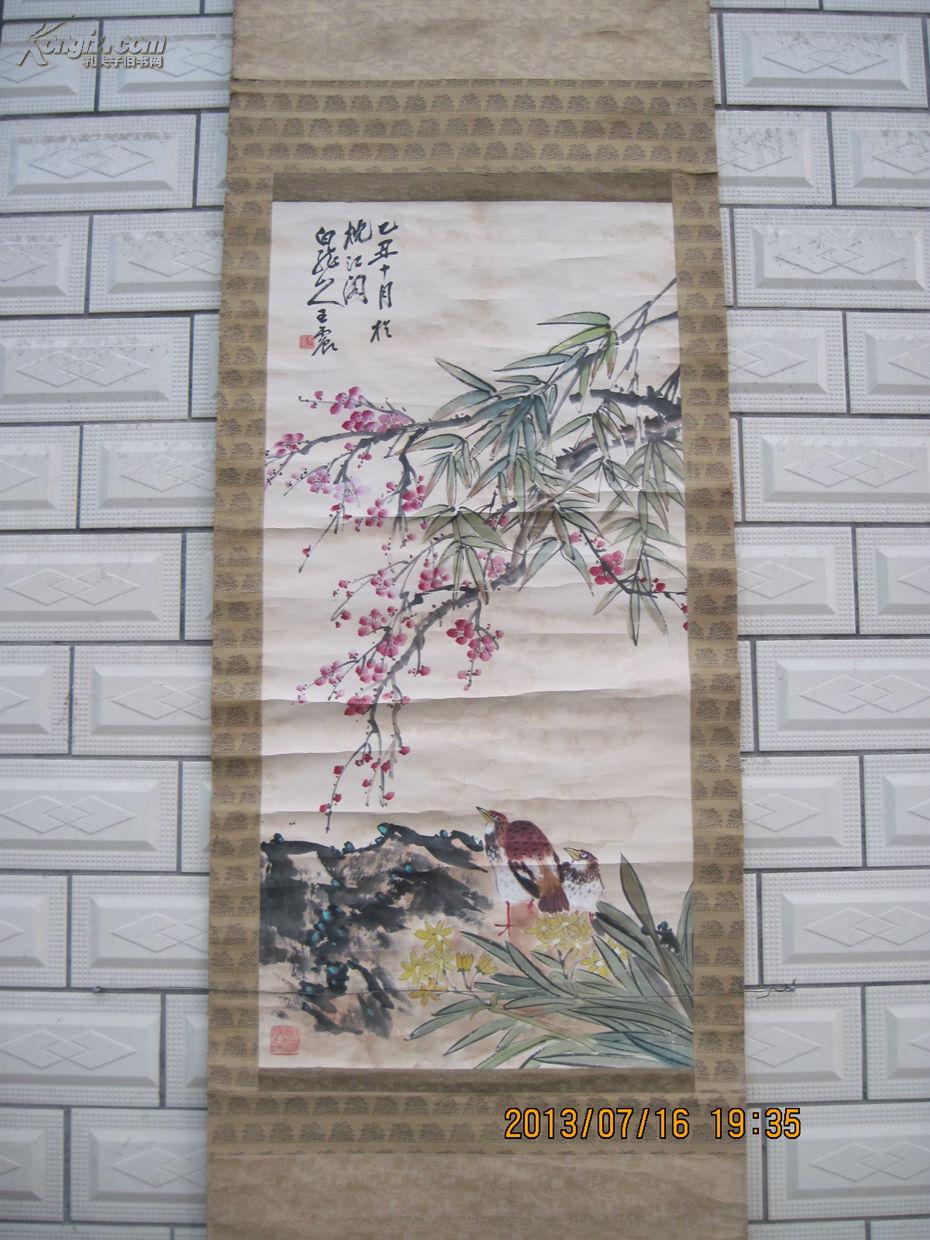 Kongfz.com
孔夫子旧书网
乙丑十月於
枕江阁
白龍山人王震
2013/07/16 19:35